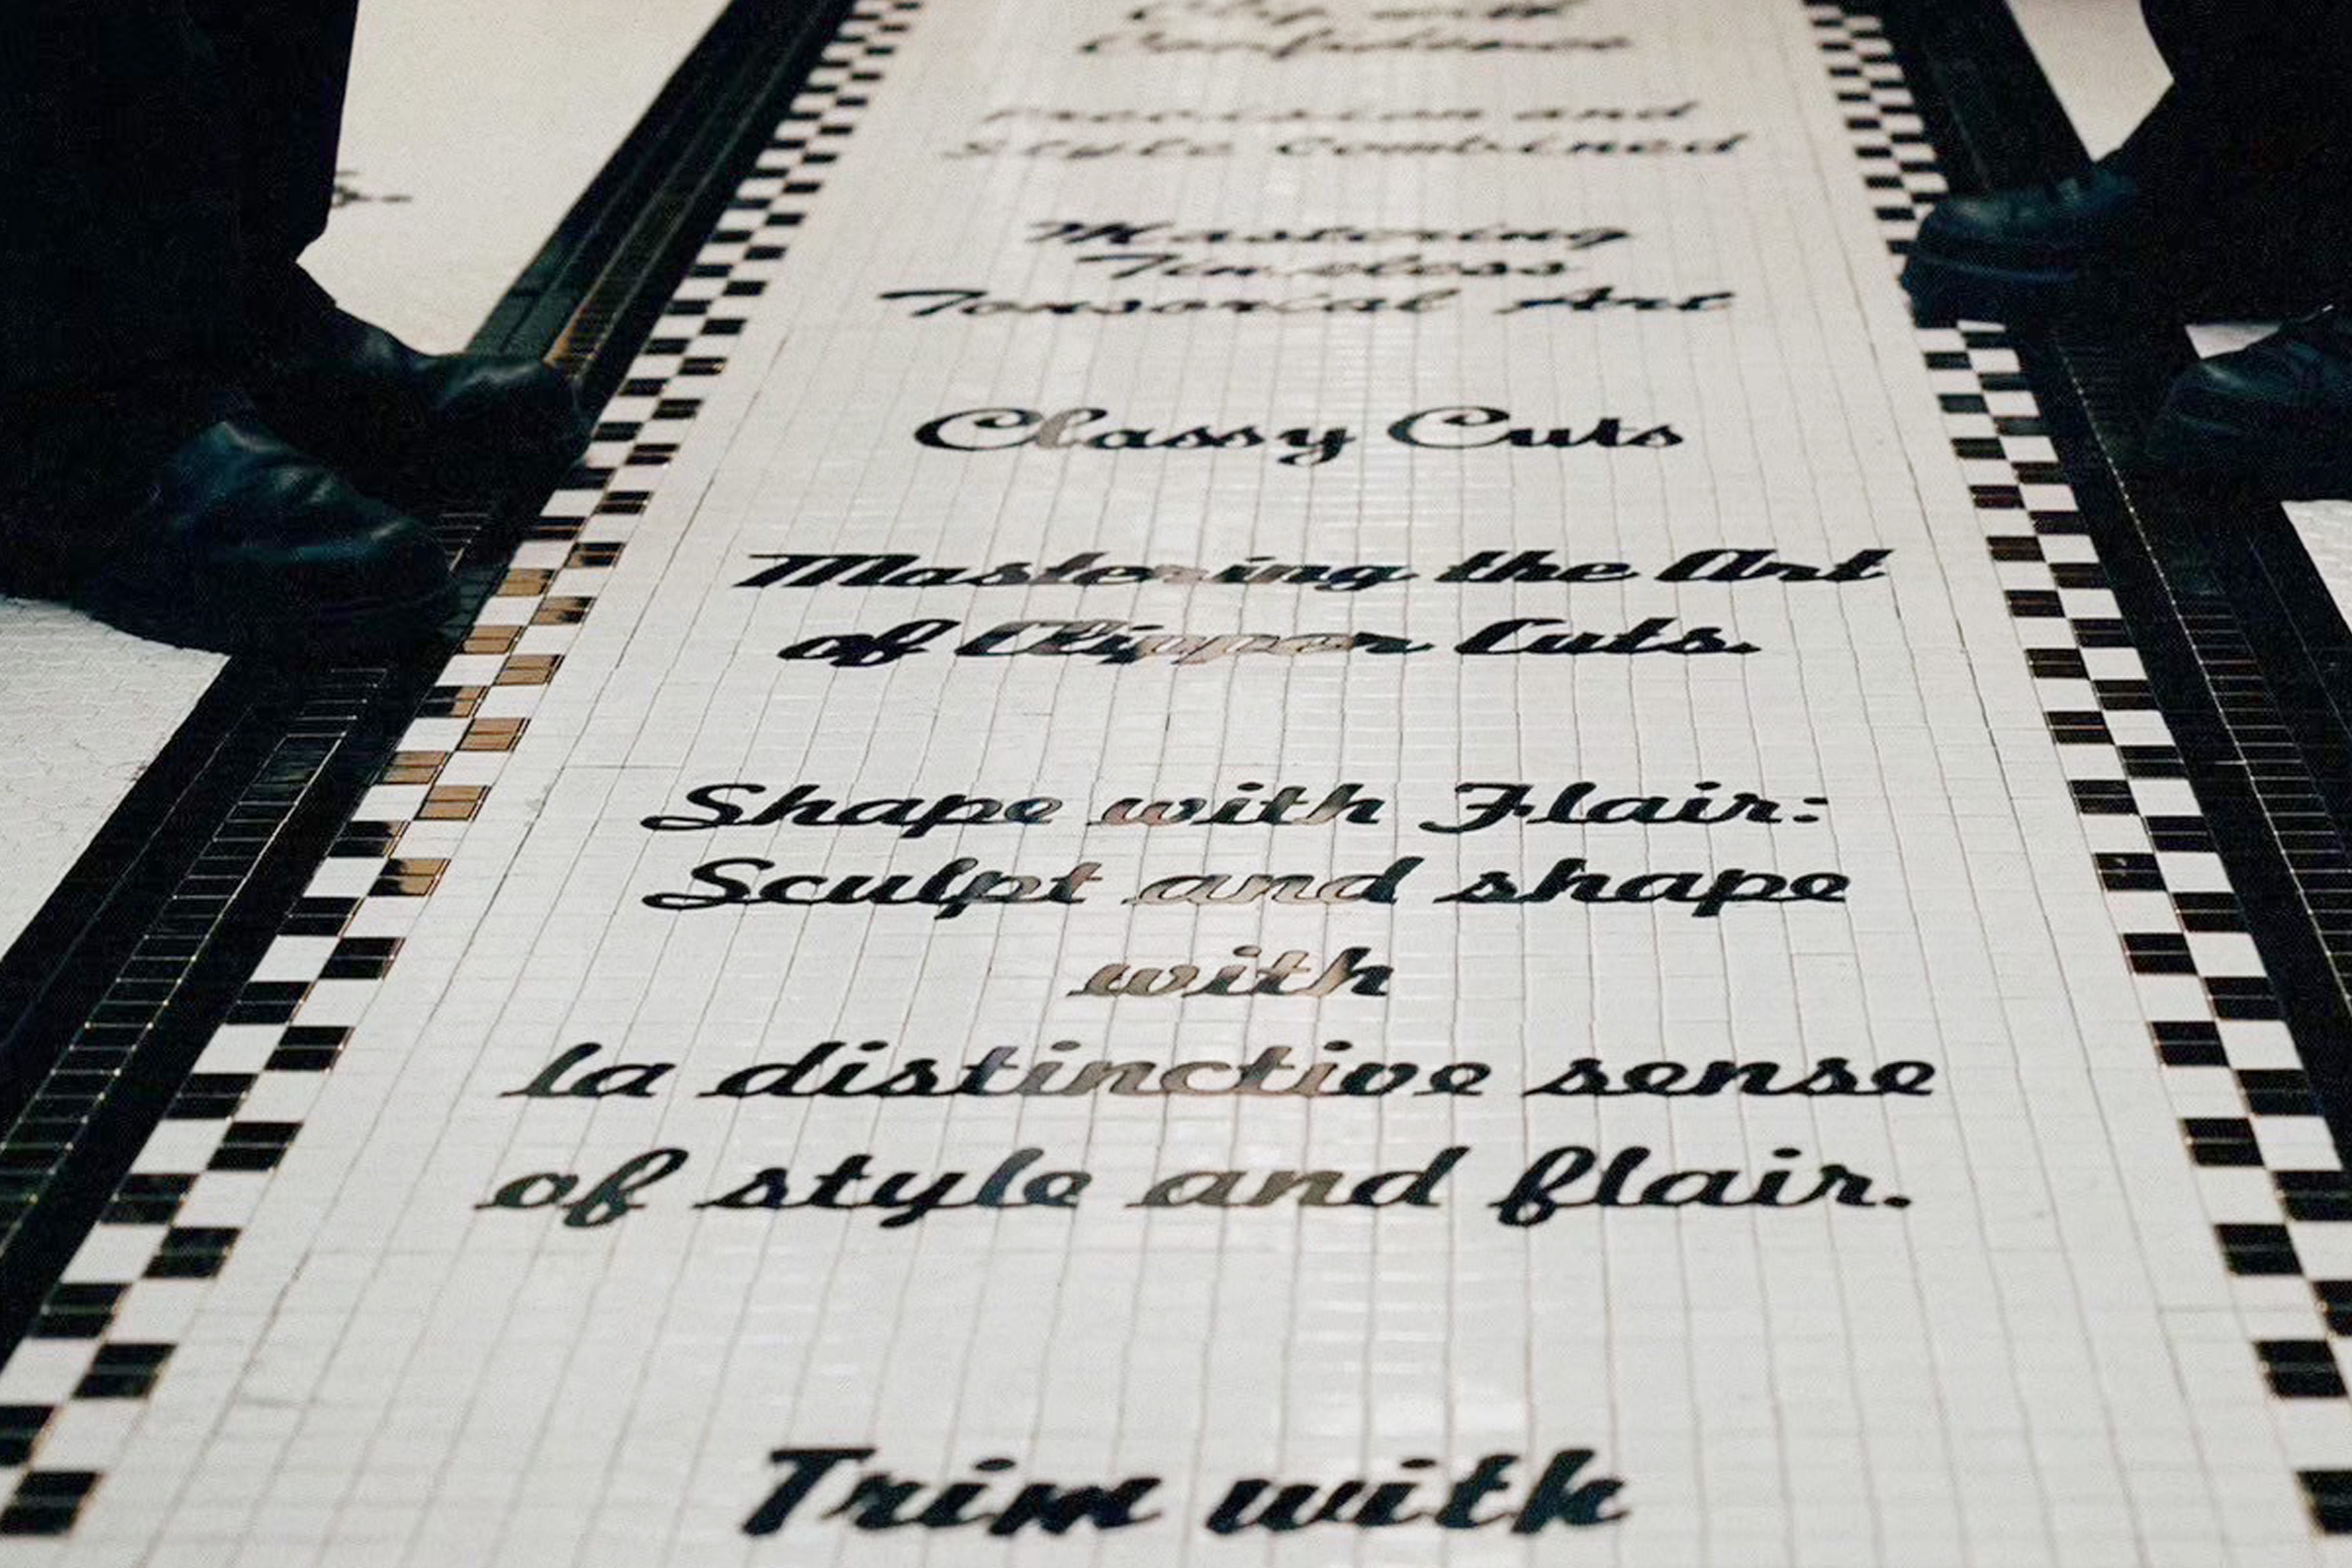 Clip with
Confidence
Precision and
Style Combined
Mastering
Timeless
Tonsorial Art
Classy Cuts
Mastering the Art
of Clipper Cuts.
Shape with Flair:
Sculpt and shape
with
la distinctive sense
of style and flair.
Trim with